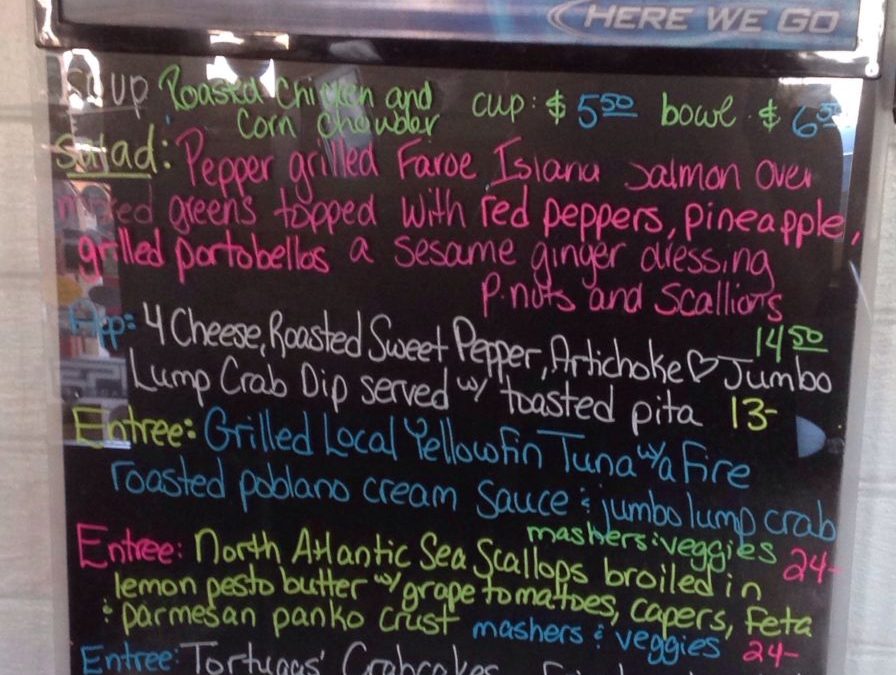 HERE WE GO
Soup Roasted Chicken and cup: $ 5.50 bowl $ 6.50
Corn Chowder
Salad: Pepper grilled Faroe Island Salmon over
mixed greens topped with red peppers, pineapple,
grilled portobellos a sesame ginger dressing
P.nuts and Scallions
14.50
App: 4 Cheese, Roasted Sweet Pepper, Artichoke ♡ Jumbo
Lump Crab Dip served w/ toasted pita 13-
Entree: Grilled Local Yellowfin Tuna w/a Fire
roasted poblano cream sauce & jumbo lump crab
mashers & veggies 24-
Entree: North Atlantic Sea Scallops broiled in
lemon pesto butter w/ grape tomatoes, capers, Feta
& parmesan panko crust mashers & veggies 24-
Entree: Tortugas' Crabcakes